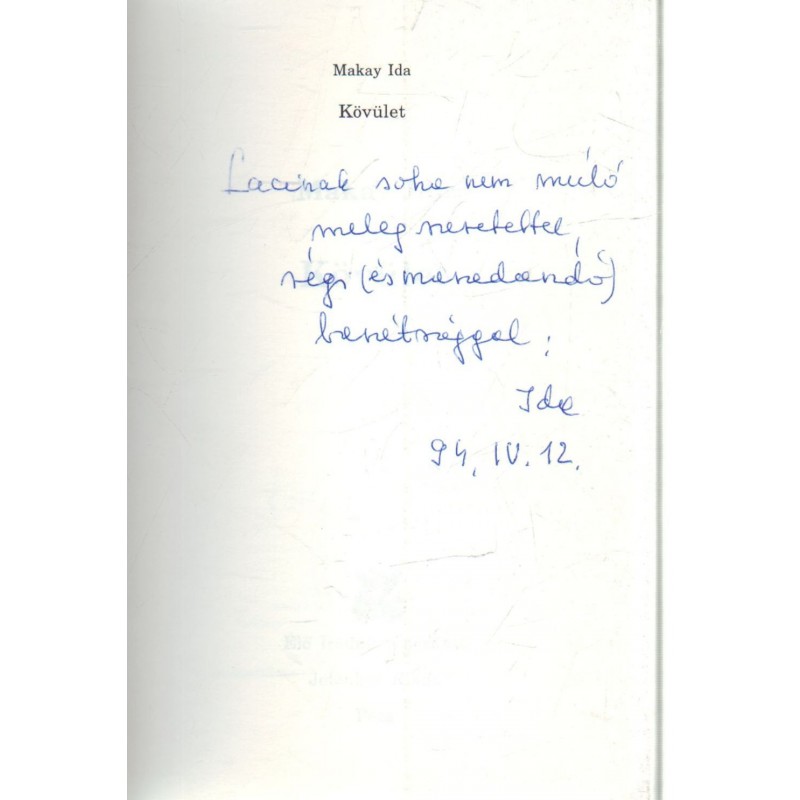 Makay Ida
Kövület
Lacinak soha nem múló
meleg szeretettel,
régi (és maradandó)
barátsággal:
Ida
94. IV. 12.